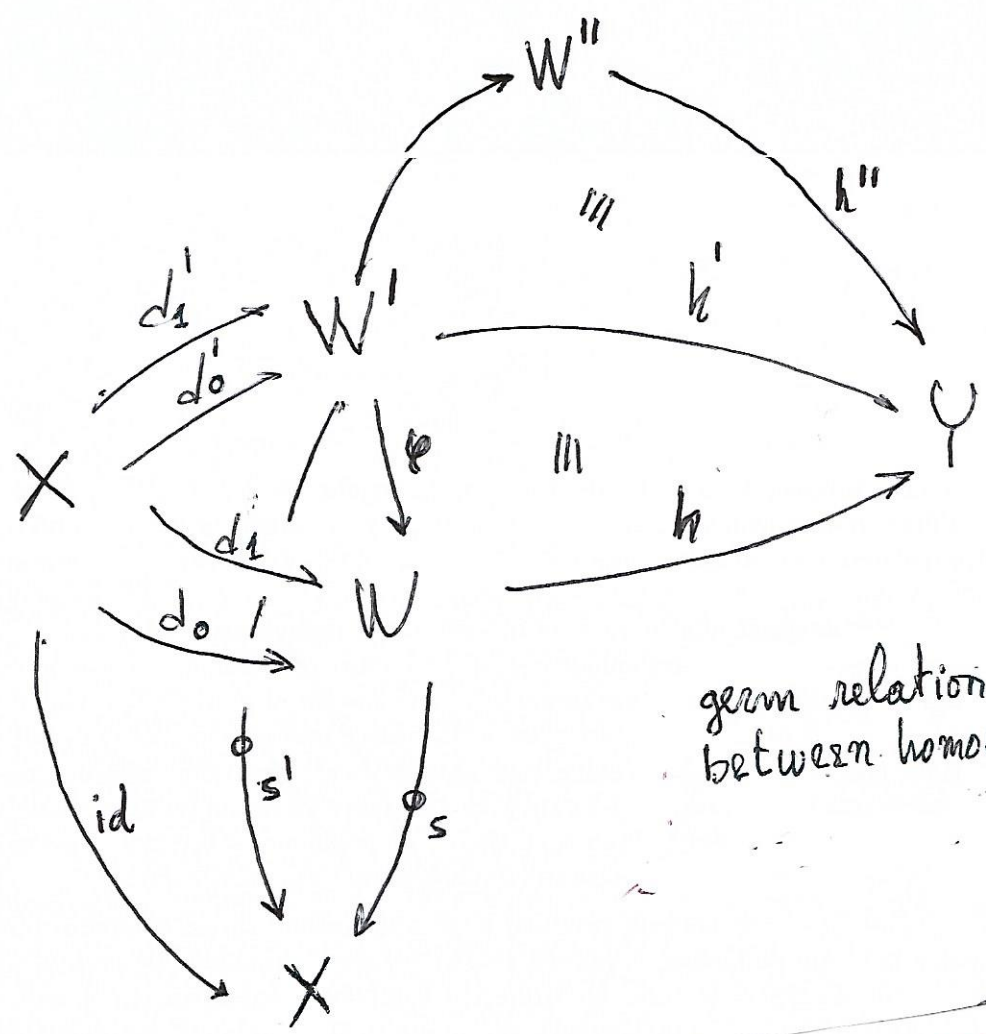 W''
h''
≡
d₁'
W'
h'
d₀'
Y
X
φ
≡
d₁
h
d₀
W
germ relation
between homo
s'
s
id
X